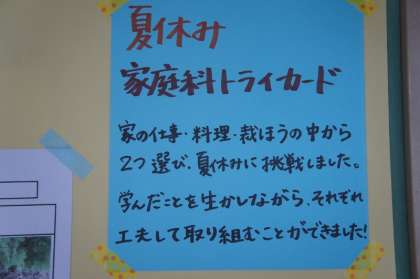 夏休み
家庭科トライカード
家の仕事・料理・裁ほうの中から
2つ選び、夏休みに挑戦しました。
学んだことを生かしながら、それぞれ
工夫して取り組むことができました!